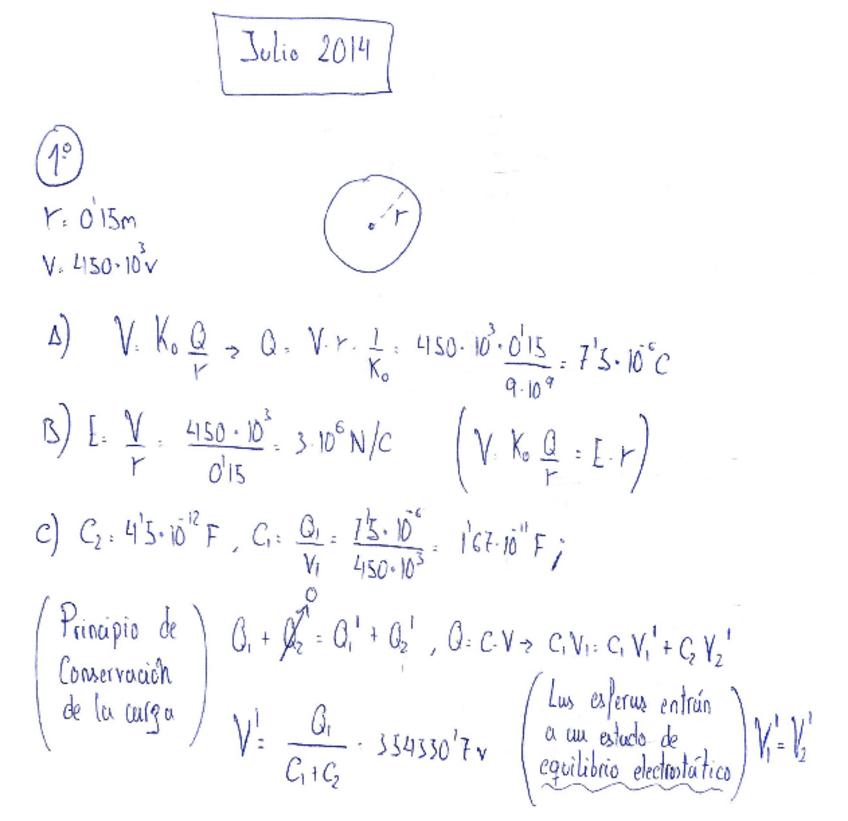 Julio 2014
1º
r
r = 0'15m
V = 450·10³v
A) V = K₀ Q/r → Q = V·r·1/K₀ = 450·10³·0'15/9·10⁹ = 7'5·10⁻⁶C
B) E = V/r = 450·10³/0'15 = 3·10⁶ N/C (V = K₀ Q/r = E·r)
C) C₂ = 4'5·10⁻¹² F, C₁ = Q₁/V₁ = 7'5·10⁻⁶/450·10³ = 1'67·10⁻¹¹ F;
(Principio de Conservación de la carga) Q₁ + Q₂↗0 = Q₁' + Q₂', Q = C·V → C₁V₁ = C₁V₁' + C₂V₂'
V' = Q₁/C₁+C₂ = 354330'7v (Las esferas entrán a un estado de equilibrio electrostático) V₁' = V₂'